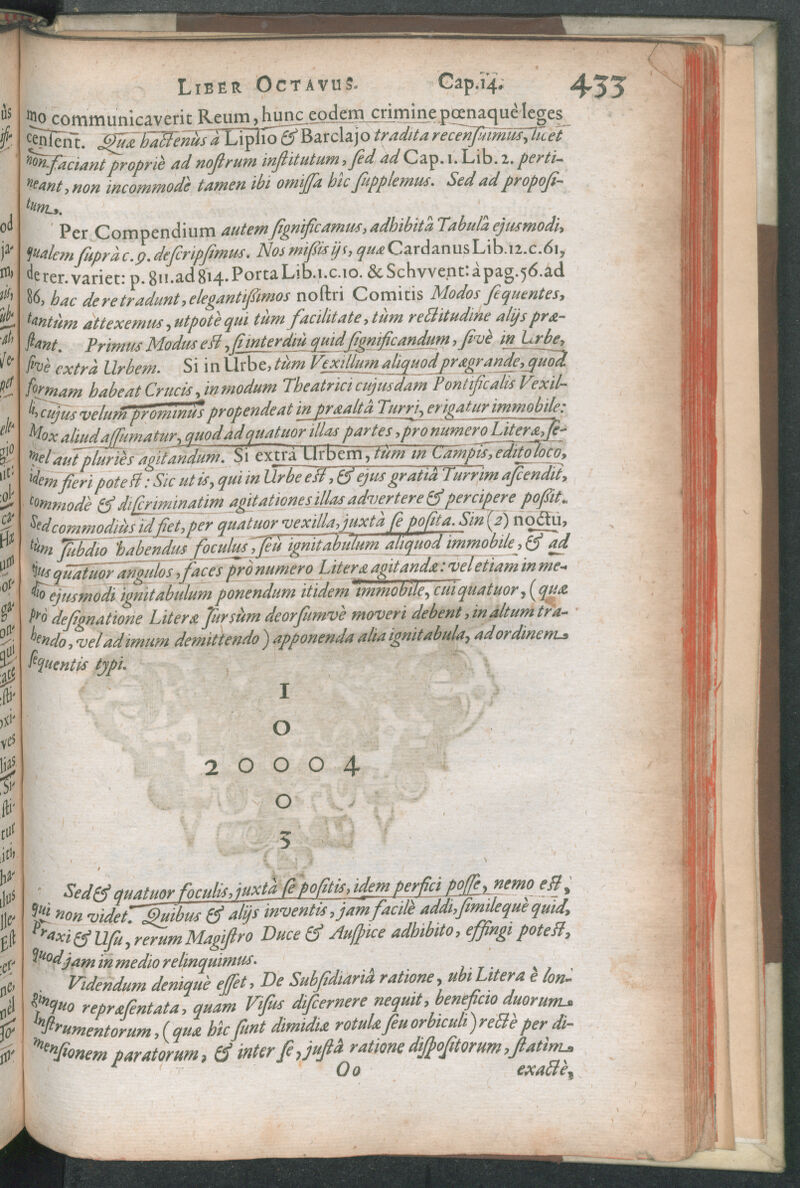 LIBER OCTAVUS. Cap.14. 433
mo communicaverit Reum, hunc eodem crimine pœnaquè leges
censent. Quæ hactenùs à Lipsio & Barclajo tradita recensuimus, licet
non faciant propriè ad nostrum institutum, sed ad Cap. 1. Lib. 2. perti-
neant, non incommodè tamen ibi omissa hîc supplemus. Sed ad proposi-
tum.
Per Compendium autem significamus, adhibitâ Tabulâ ejusmodi,
qualem suprà c. 9. descripsimus. Nos missis ijs, quæ Cardanus Lib.12.c.61,
de rer. variet: p. 811. ad 814. Porta Lib.1.c.10. & Schvvent: à pag.56. ad
86, hac de re tradunt, elegantissimos nostri Comitis Modos sequentes,
tantùm attexemus, utpotè qui tùm facilitate, tùm rectitudine alijs præ-
stant. Primus Modus est, si interdiù quid significandum, sivè in Urbe,
sivè extrà Urbem. Si in Urbe, tùm Vexillum aliquod prægrande, quod
formam habeat Crucis, in modum Theatrici cujusdam Pontificalis Vexil-
li, cujus velum prominùs propendeat in præaltâ Turri, erigatur immobile:
Mox aliud assumatur, quod ad quatuor illas partes, pro numero Literæ, se-
mel aut pluriès agitandum. Si extrà Urbem, tùm in Campis, edito loco,
idem fieri potest: Sic ut is, qui in Urbe est, & ejus gratiâ Turrim ascendit,
commodè & discriminatim agitationes illas advertere & percipere possit.
Sed commodiùs id fiet, per quatuor vexilla, juxtà se posita. Sin (2) noctu,
tùm subdio habendus foculus, seù ignitabulum aliquod immobile, & ad
ejus quatuor angulos, faces prò numero Literæ agitandæ: vel etiam in me-
dio ejusmodi ignitabulum ponendum itidem immobile, cui quatuor, (quæ
prò designatione Literæ sursùm deorsumvè moveri debent, in altum tra-
hendo, vel ad imum demittendo) apponenda alia ignitabula, ad ordinem
sequentis typi.
1
O
2 O O O 4
O
3
Sed & quatuor foculis, juxtà se positis, idem perfici posse, nemo est,
qui non videt. Quibus & alijs inventis, jam facilè addi, simileque quid,
Praxi & Usu, rerum Magistro Duce & Auspice adhibito, effingi potest,
quod jam in medio relinquimus.
Videndum deniquè esset, De Subsidiariâ ratione, ubi Litera è lon-
ginquo repræsentata, quam Visus discernere nequit, beneficio duorum
Instrumentorum, (quæ hîc sunt dimidiæ rotulæ seu orbiculi) rectè per di-
mensionem paratorum, & inter se, justâ ratione dispositorum, statìm
Oo exactè,